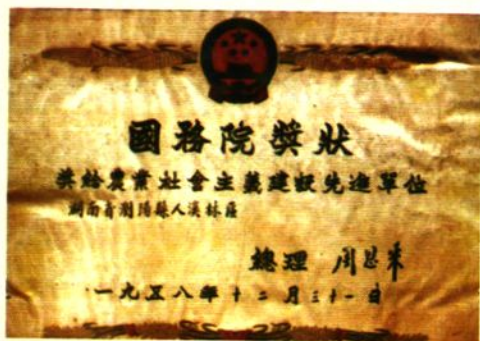 國務院獎狀
獎給農業社會主義建設先進單位
湖南省瀏陽縣人溪林區
總理 周恩來
一九五八年十二月三十一日